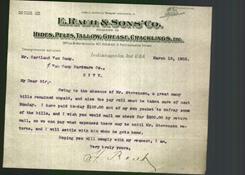 E. RAUH & SONS' CO.
HIDES, PELTS, TALLOW, GREASE, CRACKLINGS, ETC.
Indianapolis, Ind. USA
March 13, 1902.
Mr. Cortland Van Camp,
Van Camp Hardware Co.
CITY.
My Dear Sir,-
Owing to the absence of Mr. Stevenson, a great many
bills remained unpaid, and also the pay roll must be taken care of next
Monday. I have paid to-day $100.00 out of my own pocket to defray some
of the bills, and I wish you would mail me check for $200.00 by return
mail, so we can pay what expenses there may be until Mr. Stevenson re-
turns, and I will settle with him when he gets home.
Hoping you will comply with my request, I am,
Very truly yours,